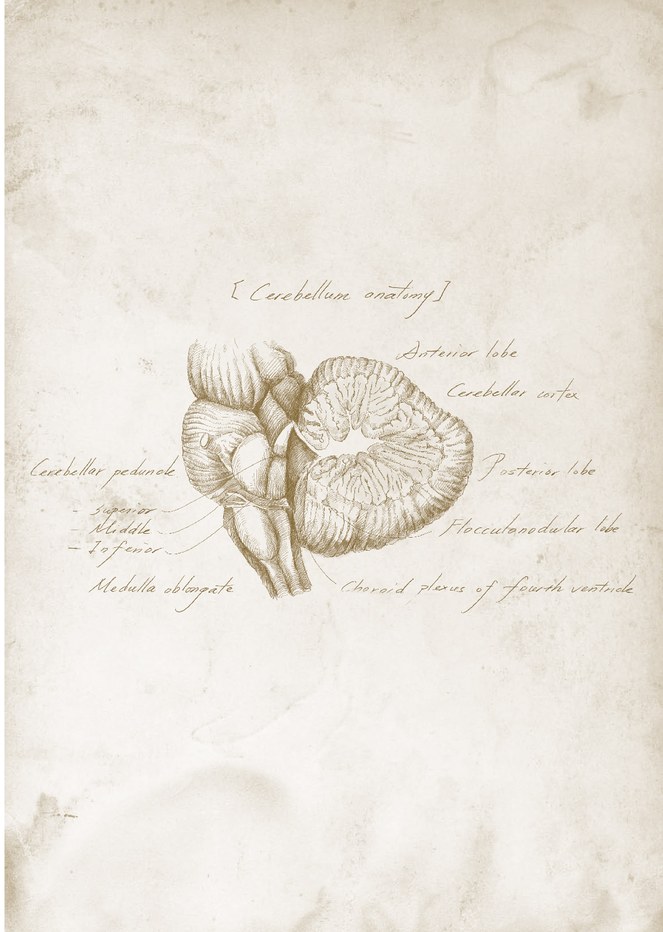 [ Cerebellum anatomy ]
Anterior lobe
Cerebellar cortex
Cerebellar peduncle
Posterior lobe
- Superior
- Middle
- Inferior
Flocculonodular lobe
Medulla oblongate
Choroid plexus of fourth ventricle